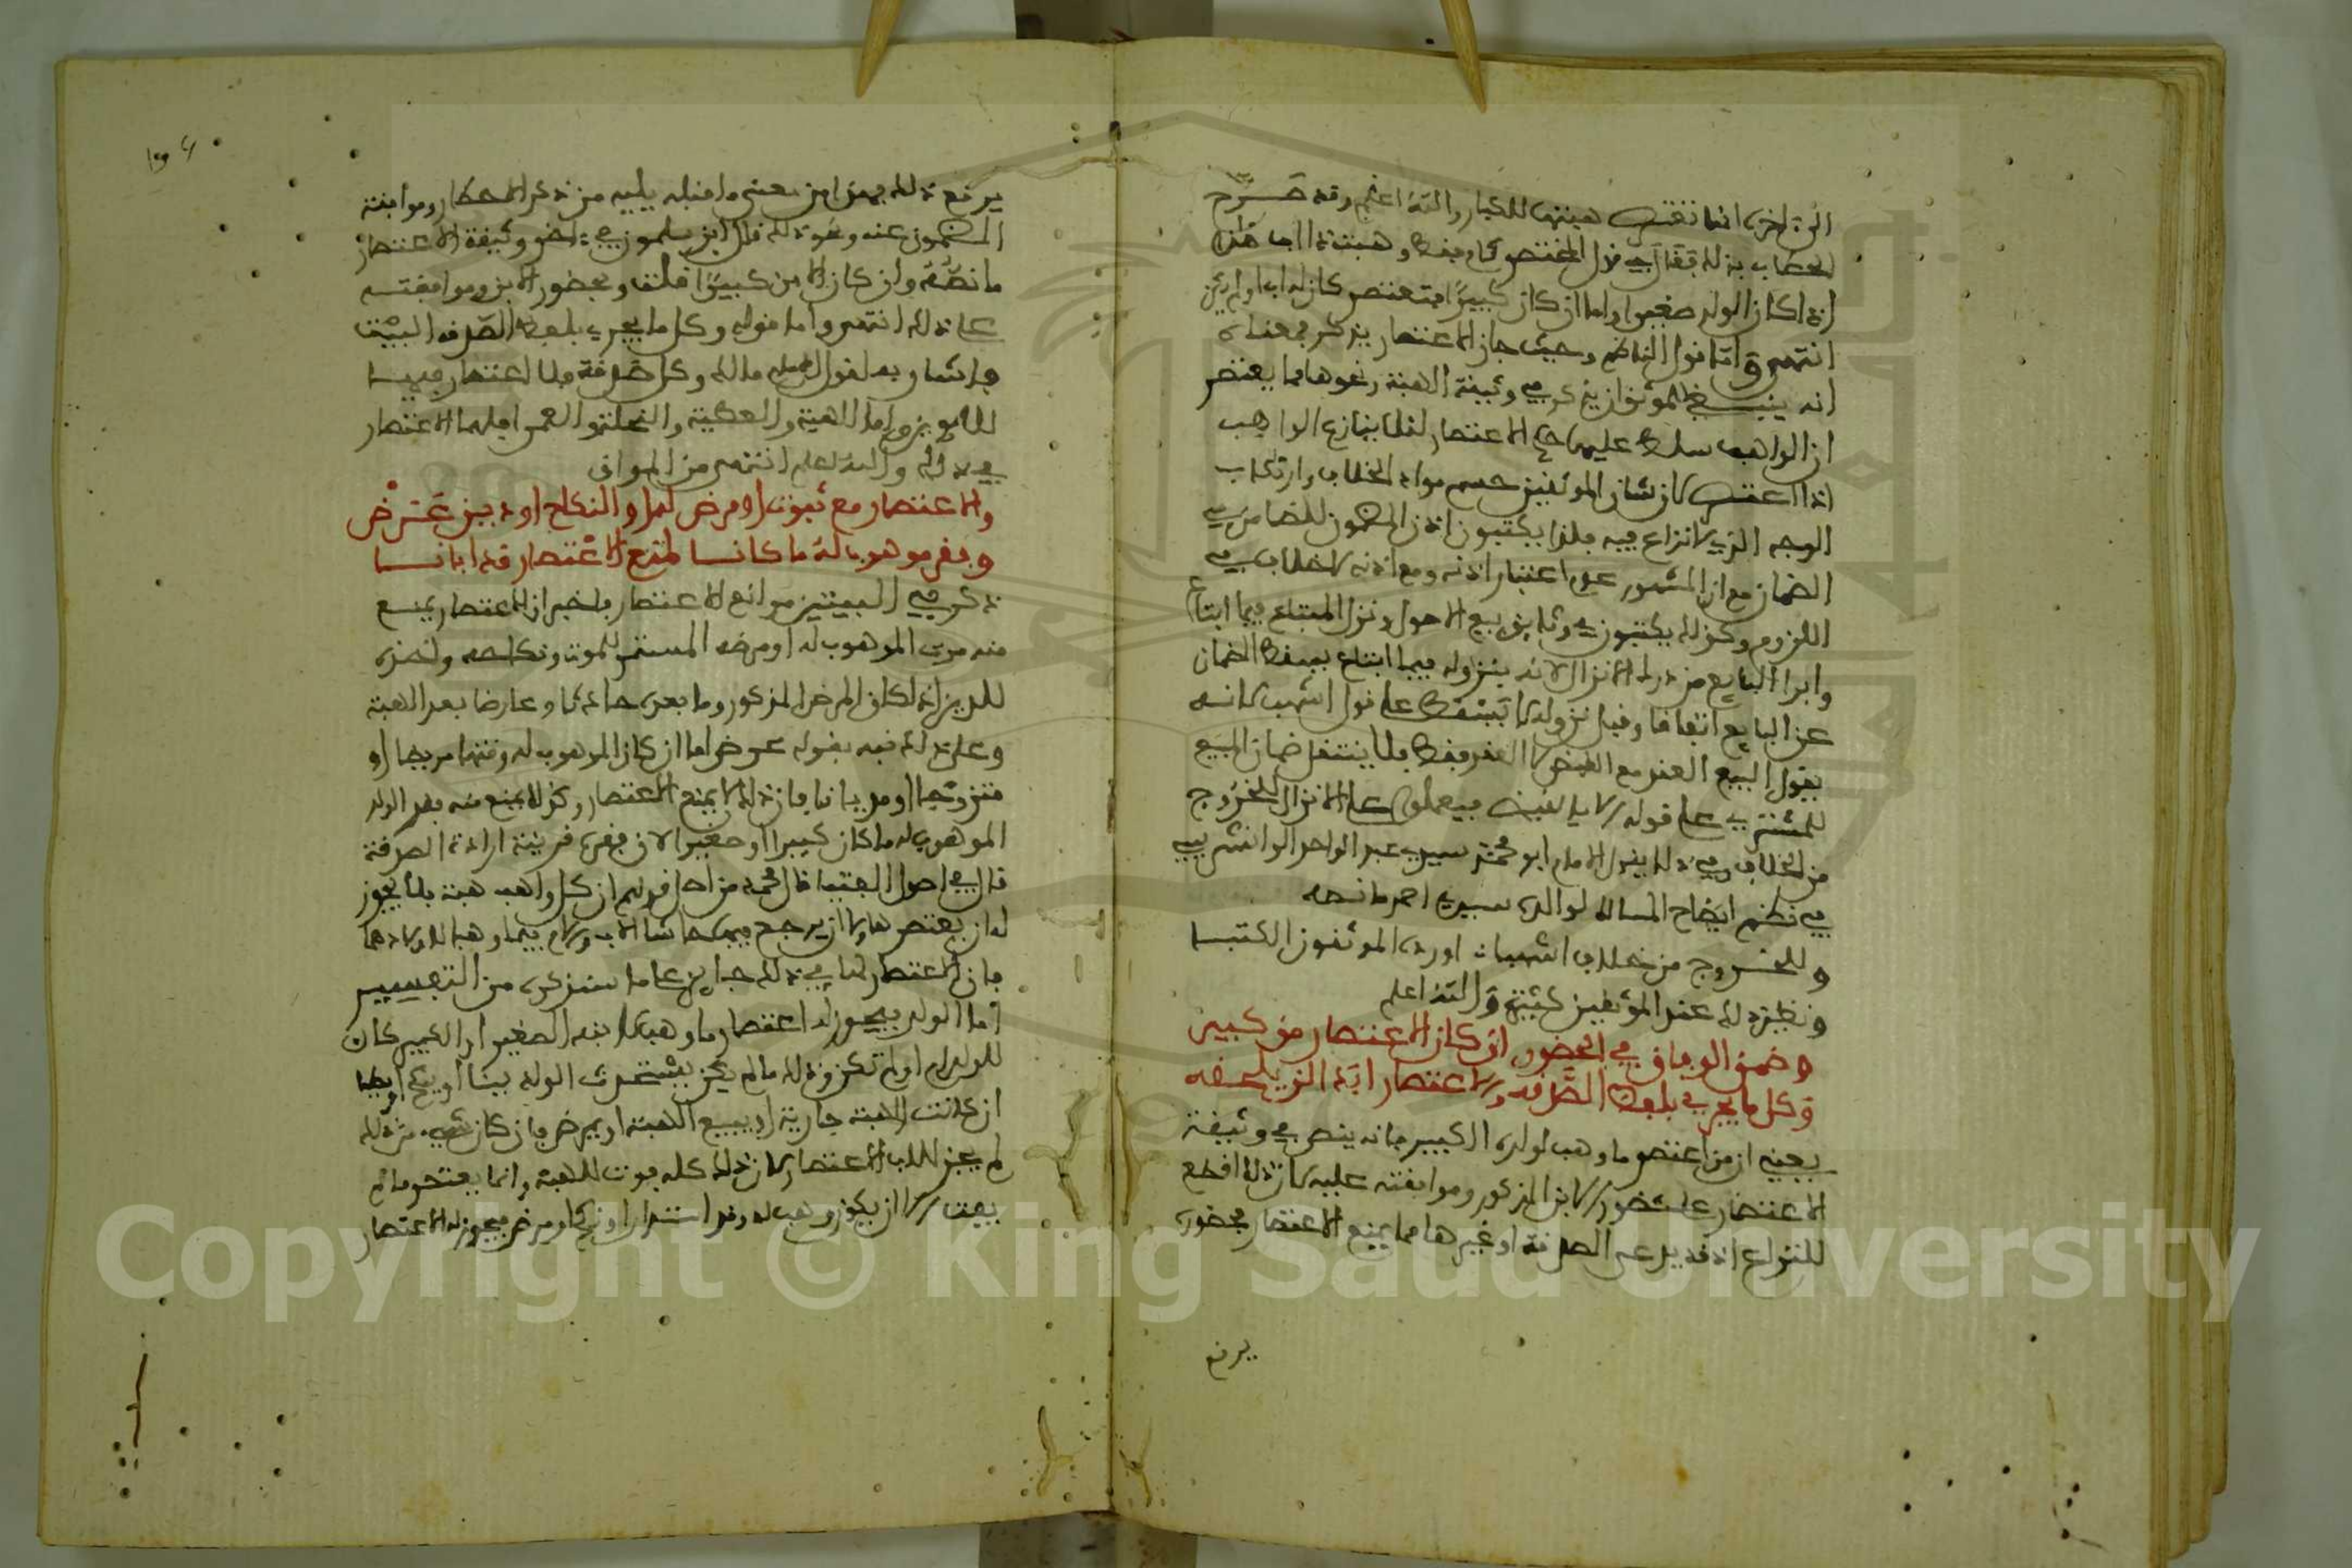 الى اخره انما تفتقر هبتها للكبار والله اعلم وقد صرح
الحطاب بذلك فقال في قول المختصر كام فقط وهبت ذا اب هذا
اذا كان الولد صغيرا واما ان كان كبيرا فتعتصر كان له اب او لم يكن
انتهى واما قول الناظم وحيث جاز الاعتصار يذكر فمعناه
انه ينبغي للموثق ان يذكر في وثيقة الهبة ونحوها مما يعتصر
ان الواهب سلط عليها حكم الاعتصار لئلا ينازع الواهب
اذا اعتصر لان شان الموثقين حسم مواد الخلاف وارتكاب
الوجه الذي لا نزاع فيه فلذا يكتبون اذن المضمون للضامن في
الضمان مع ان المشهور عدم اعتبار اذنه ومع اذنه لا خلاف في
اللزوم وكذلك يكتبون في وثايق بيع الاصول ونزل المبتاع فيما ابتاع
وابرا البايع من درك الانزال لانه بنزوله فيما ابتاع يسقط الضمان
عن البايع اتفاقا وقبل نزوله لا يسقط على قول اشهب لانه
يقول البيع العقد مع القبض لا العقد فقط فلا ينتقل ضمان المبيع
للمشتري على قوله الا بالقبض فيعملون على الانزال للخروج
من الخلاف وفي ذلك يقول الامام ابو محمد سيدي عبد الواحد الوانشريسي
في نظم ايضاح المسالك لوالده سيدي احمد ما نصه
وللخروج من خلاف اشهبا اورده الموثقون الكتبا
ونظير ذلك عند الموثقين كثير والله اعلم
وضمن الوفاق في الحضور ان كان الاعتصار من كبير
وكل ما يجري بلفظ الصدقه لا اعتصار ابدا لن يلحقه
يعني ان من اعتصر ما وهب لولده الكبير فانه ينص في وثيقة
الاعتصار على حضور الابن المذكور وموافقته عليه لان ذلك اقطع
للنزاع اذ قد يدعي الصدقة او غيرها مما يمنع الاعتصار فحضوره
يرفع
يرفع ذلك فهذا من معنى ما قبله يليه من ذكر الاحضار وموافقة
المضمون عنه ونحو ذلك قال ابن سلمون في وثيقة الاعتصار
ما نصه وان كان الابن كبيرا قلت وبحضور الابن وموافقته
على ذلك انتهى واما قوله وكل ما يجري بلفظ الصدقه البيت
فاشار به لقول الامام مالك وكل صدقة فلا اعتصار فيها
للابوين واما الهبة والعطية والنحلة والعمرى فلهما الاعتصار
في ذلك والله اعلم انتهى من المواق
ولا اعتصار مع موت او مرض لهما والنكاح او دين عرض
وفقر موهوب له ما كانا لمنع الاعتصار قد ابانا
ذكر في البيتين موانع الاعتصار فاخبر ان الاعتصار يمنع
منه موت الموهوب له او مرضه المستمر للموت ونكاحه واخذه
للدين اذا كان المرض المذكور وما بعده حادثا وعارضا بعد الهبة
وعلى ذلك نبه بقوله عرض اما ان كان الموهوب له وقتها مريضا او
متزوجا او مديانا فان ذلك لا يمنع الاعتصار وكذلك يمنع منه فقر الولد
الموهوب له ما كان كبيرا او صغيرا لان فقره قرينة ارادة الصدقة
قال في اصول الفتيا قال محمد من اصل قولهم ان كل واهب هبة فلا يجوز
له ان يعتصرها ولا ان يرجع فيها حاشا الاب والام فيما وهبا لاولادهما
فان الاعتصار لهما في ذلك جايز على ما سنذكره من التفسير
اما الولد فيجوز له اعتصار ما وهب لابنه الصغير او الكبير كان
للولد ام او لم تكن وذلك ما لم يكن يستحدث الولد دينا او ينكح او يطا
ان كانت الهبة جارية او يبيع الهبة او يمرض فان كان شيء من ذلك
لم يجز للاب الاعتصار لان ذلك كله فوت للهبة وانما يعتصر ما لم
يفت الا ان يكون وهب له وقد استدان او نكح او مرض فيجوز له الاعتصار